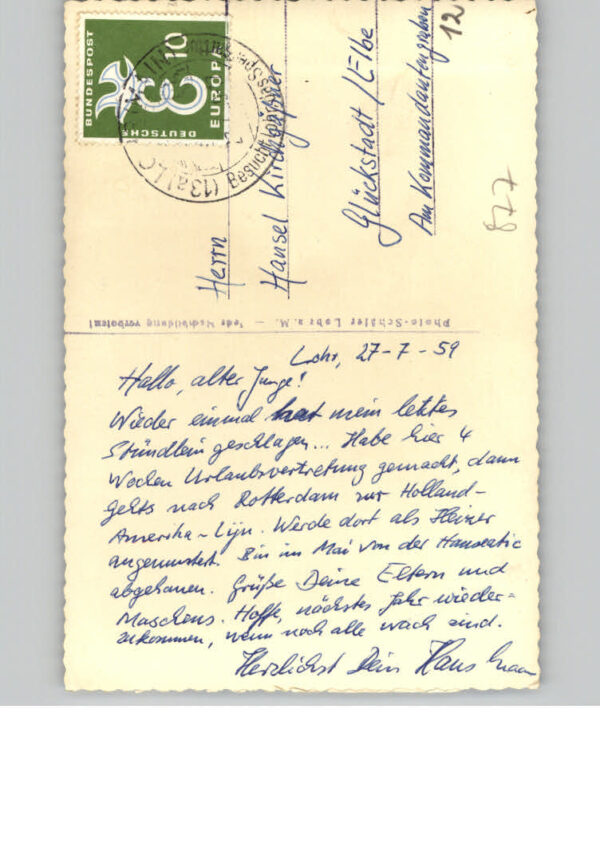 Lohr, 27-7-59
Hallo, alter Junge!
Wieder einmal hat mein letztes
Stündlein geschlagen... Habe hier 4
Wochen Urlaubsvertretung gemacht, dann
gehts nach Rotterdam zur Holland-
Amerika-Lijn. Werde dort als Heizer
angemustert. Bin im Mai von der Hanseatic
abgehauen. Grüße Deine Eltern und
Maschens. Hoffe, nächstes Jahr wieder-
zukommen, wenn noch alle wach sind.
Herzlichst Dein Hans
Photo-Schäfer Lohr a. M. — Jede Nachbildung verboten!
Herrn
Hansel
Glückstadt /Elbe
Am Kommandantengraben
12
877
DEUTSCHE
BUNDESPOST
EUROPA
10
(13a)
Besucht